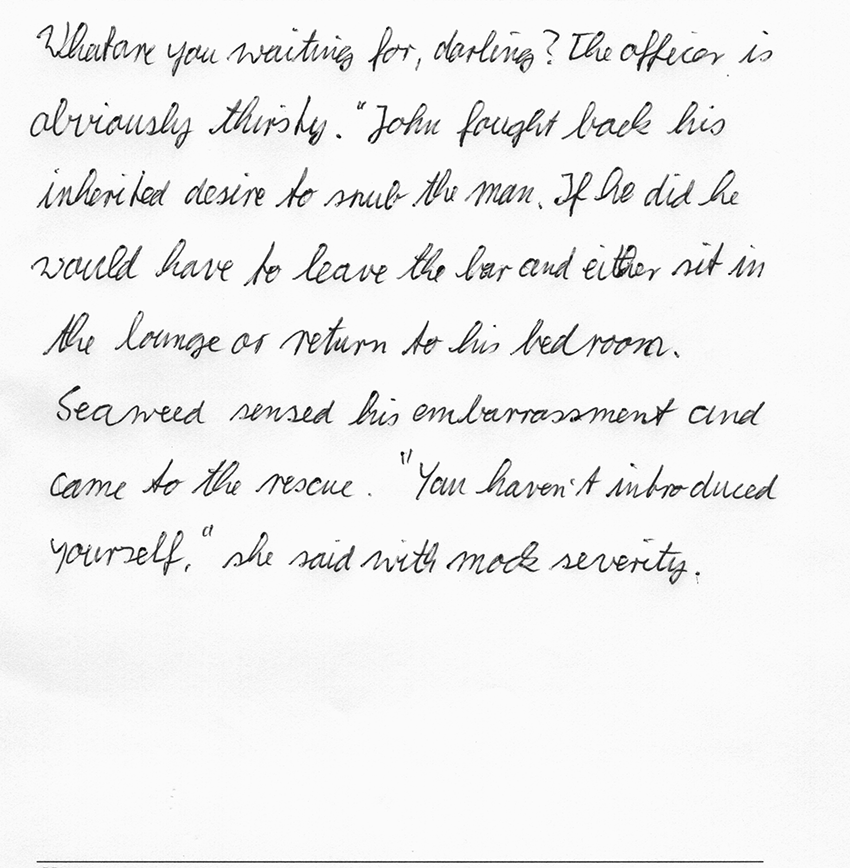 What are you waiting for, darling? The officer is
obviously thirsty." John fought back his
inherited desire to snub the man. If he did he
would have to leave the bar and either sit in
the lounge or return to his bedroom.
Seaweed sensed his embarrassment and
came to the rescue. "You haven't introduced
yourself," she said with mock severity.